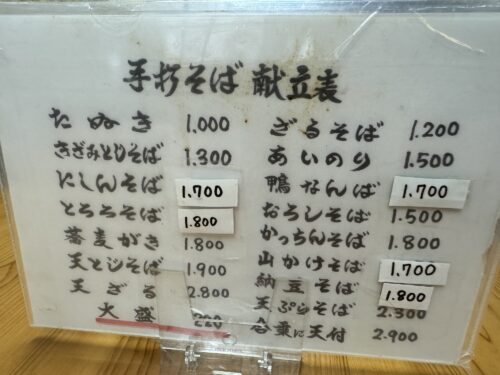 手打そば 献立表
たぬき 1.000
きざみとじそば 1.300
にしんそば 1.700
とろろそば 1.800
蕎麦がき 1.800
天とじそば 1.900
天ざる 2.800
大盛 220
ざるそば 1.200
あいのり 1.500
鴨なんば 1.700
おろしそば 1.500
かっちんそば 1.800
山かけそば 1.700
納豆そば 1.800
天ぷらそば 2.300
合乗に天付 2.900